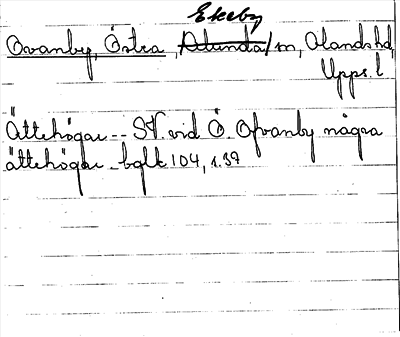 Ekeby
Ovanby, Östra, Alunda/m, Olands hd,
Upps. l
Ättehögar -- SV. vid Ö. Ofvanby några
ättehögar - bglt 104, s. 39